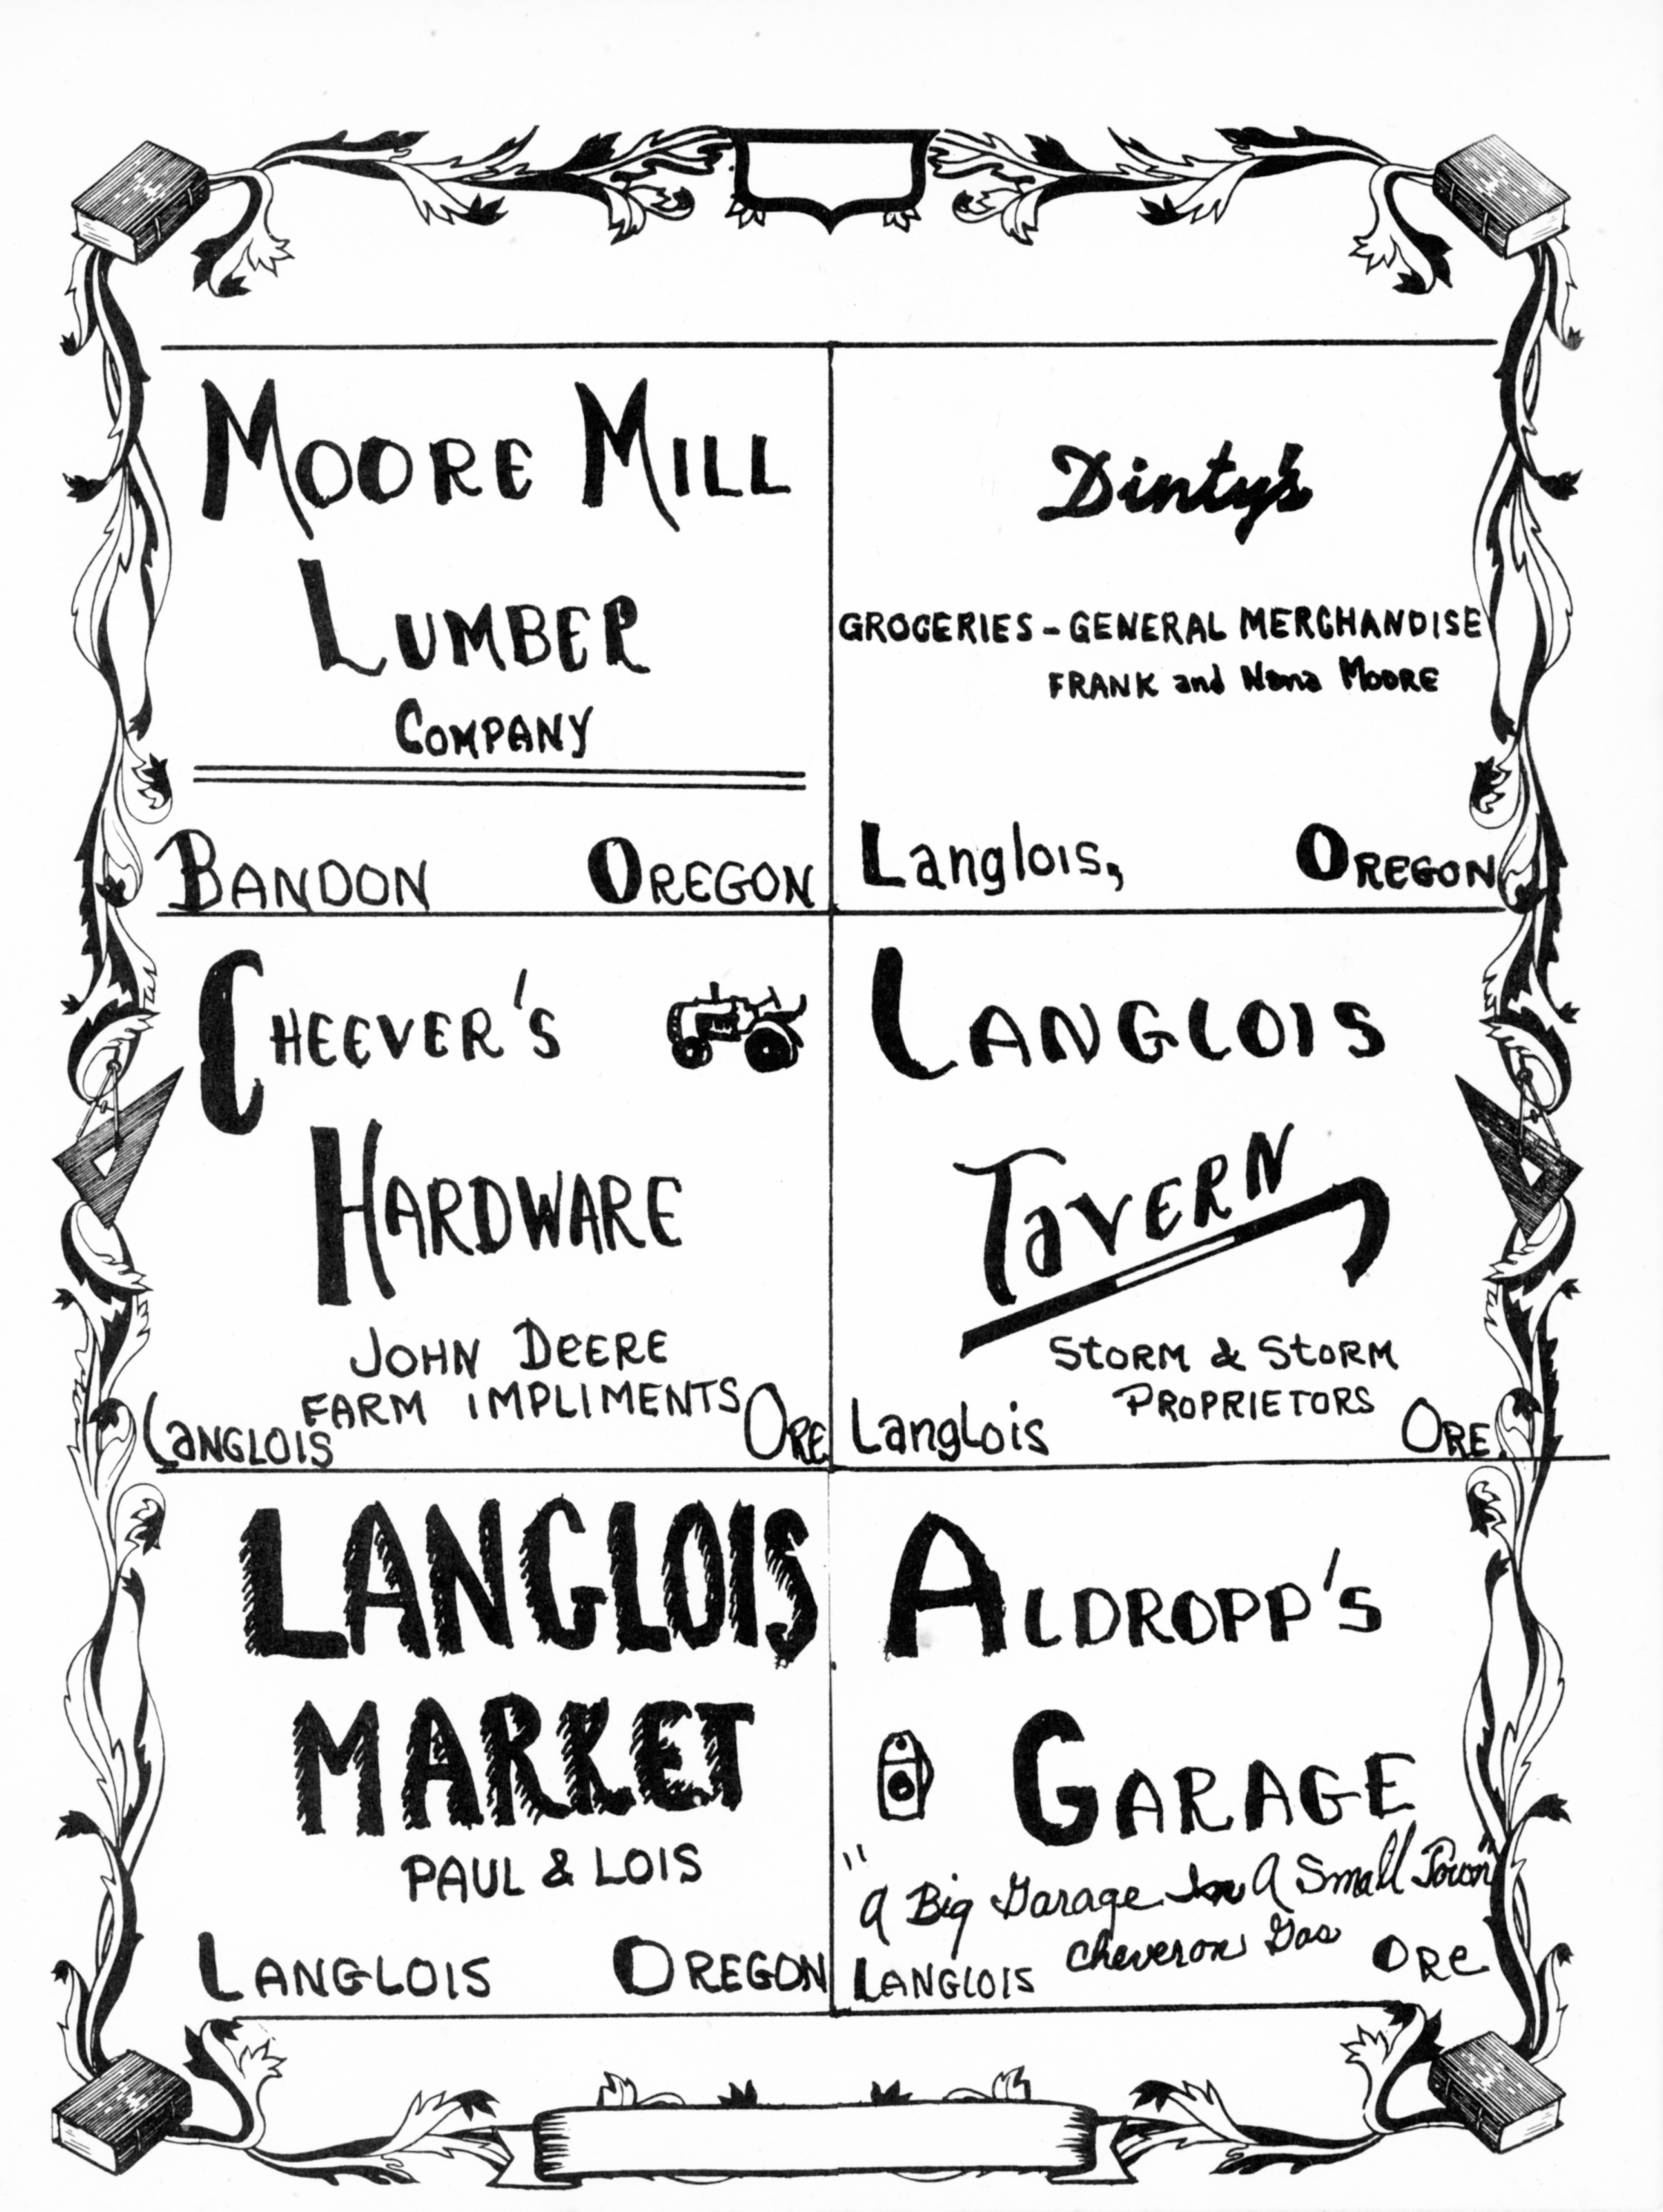 MOORE MILL
LUMBER
COMPANY
BANDON OREGON
Dinty's
GROCERIES - GENERAL MERCHANDISE
FRANK and Nona MOORE
Langlois, OREGON
CHEEVER'S
HARDWARE
JOHN DEERE
FARM IMPLIMENTS
LANGLOIS ORE
LANGLOIS
TAVERN
STORM & STORM
PROPRIETORS
Langlois ORE.
LANGLOIS
MARKET
PAUL & LOIS
LANGLOIS OREGON
ALDROPP'S
GARAGE
"A Big Garage In A Small Town"
Cheveron Gas
LANGLOIS ORE